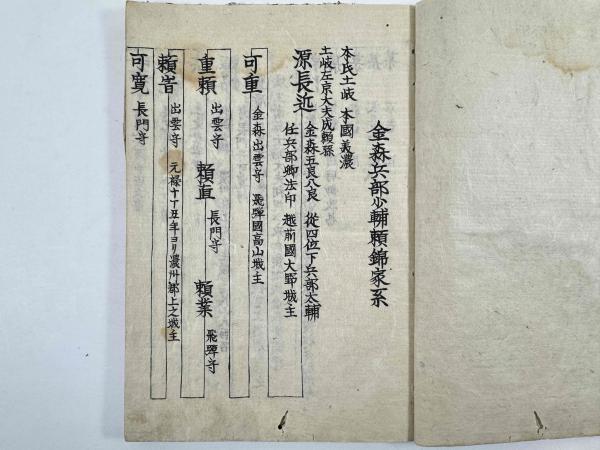 金森兵部少輔頼錦家系
本氏土岐 本國美濃
土岐左京大夫成頼孫
源長近 金森五良八良 從四位下兵部太輔
任兵部卿法印 越前國大野城主
可重 金森出雲守 飛騨國高山城主
重頼 出雲守 頼直 長門守 頼業 飛騨守
頼旹 出雲守 元禄十丁丑年ヨリ濃州郡上之城主
可寛 長門守